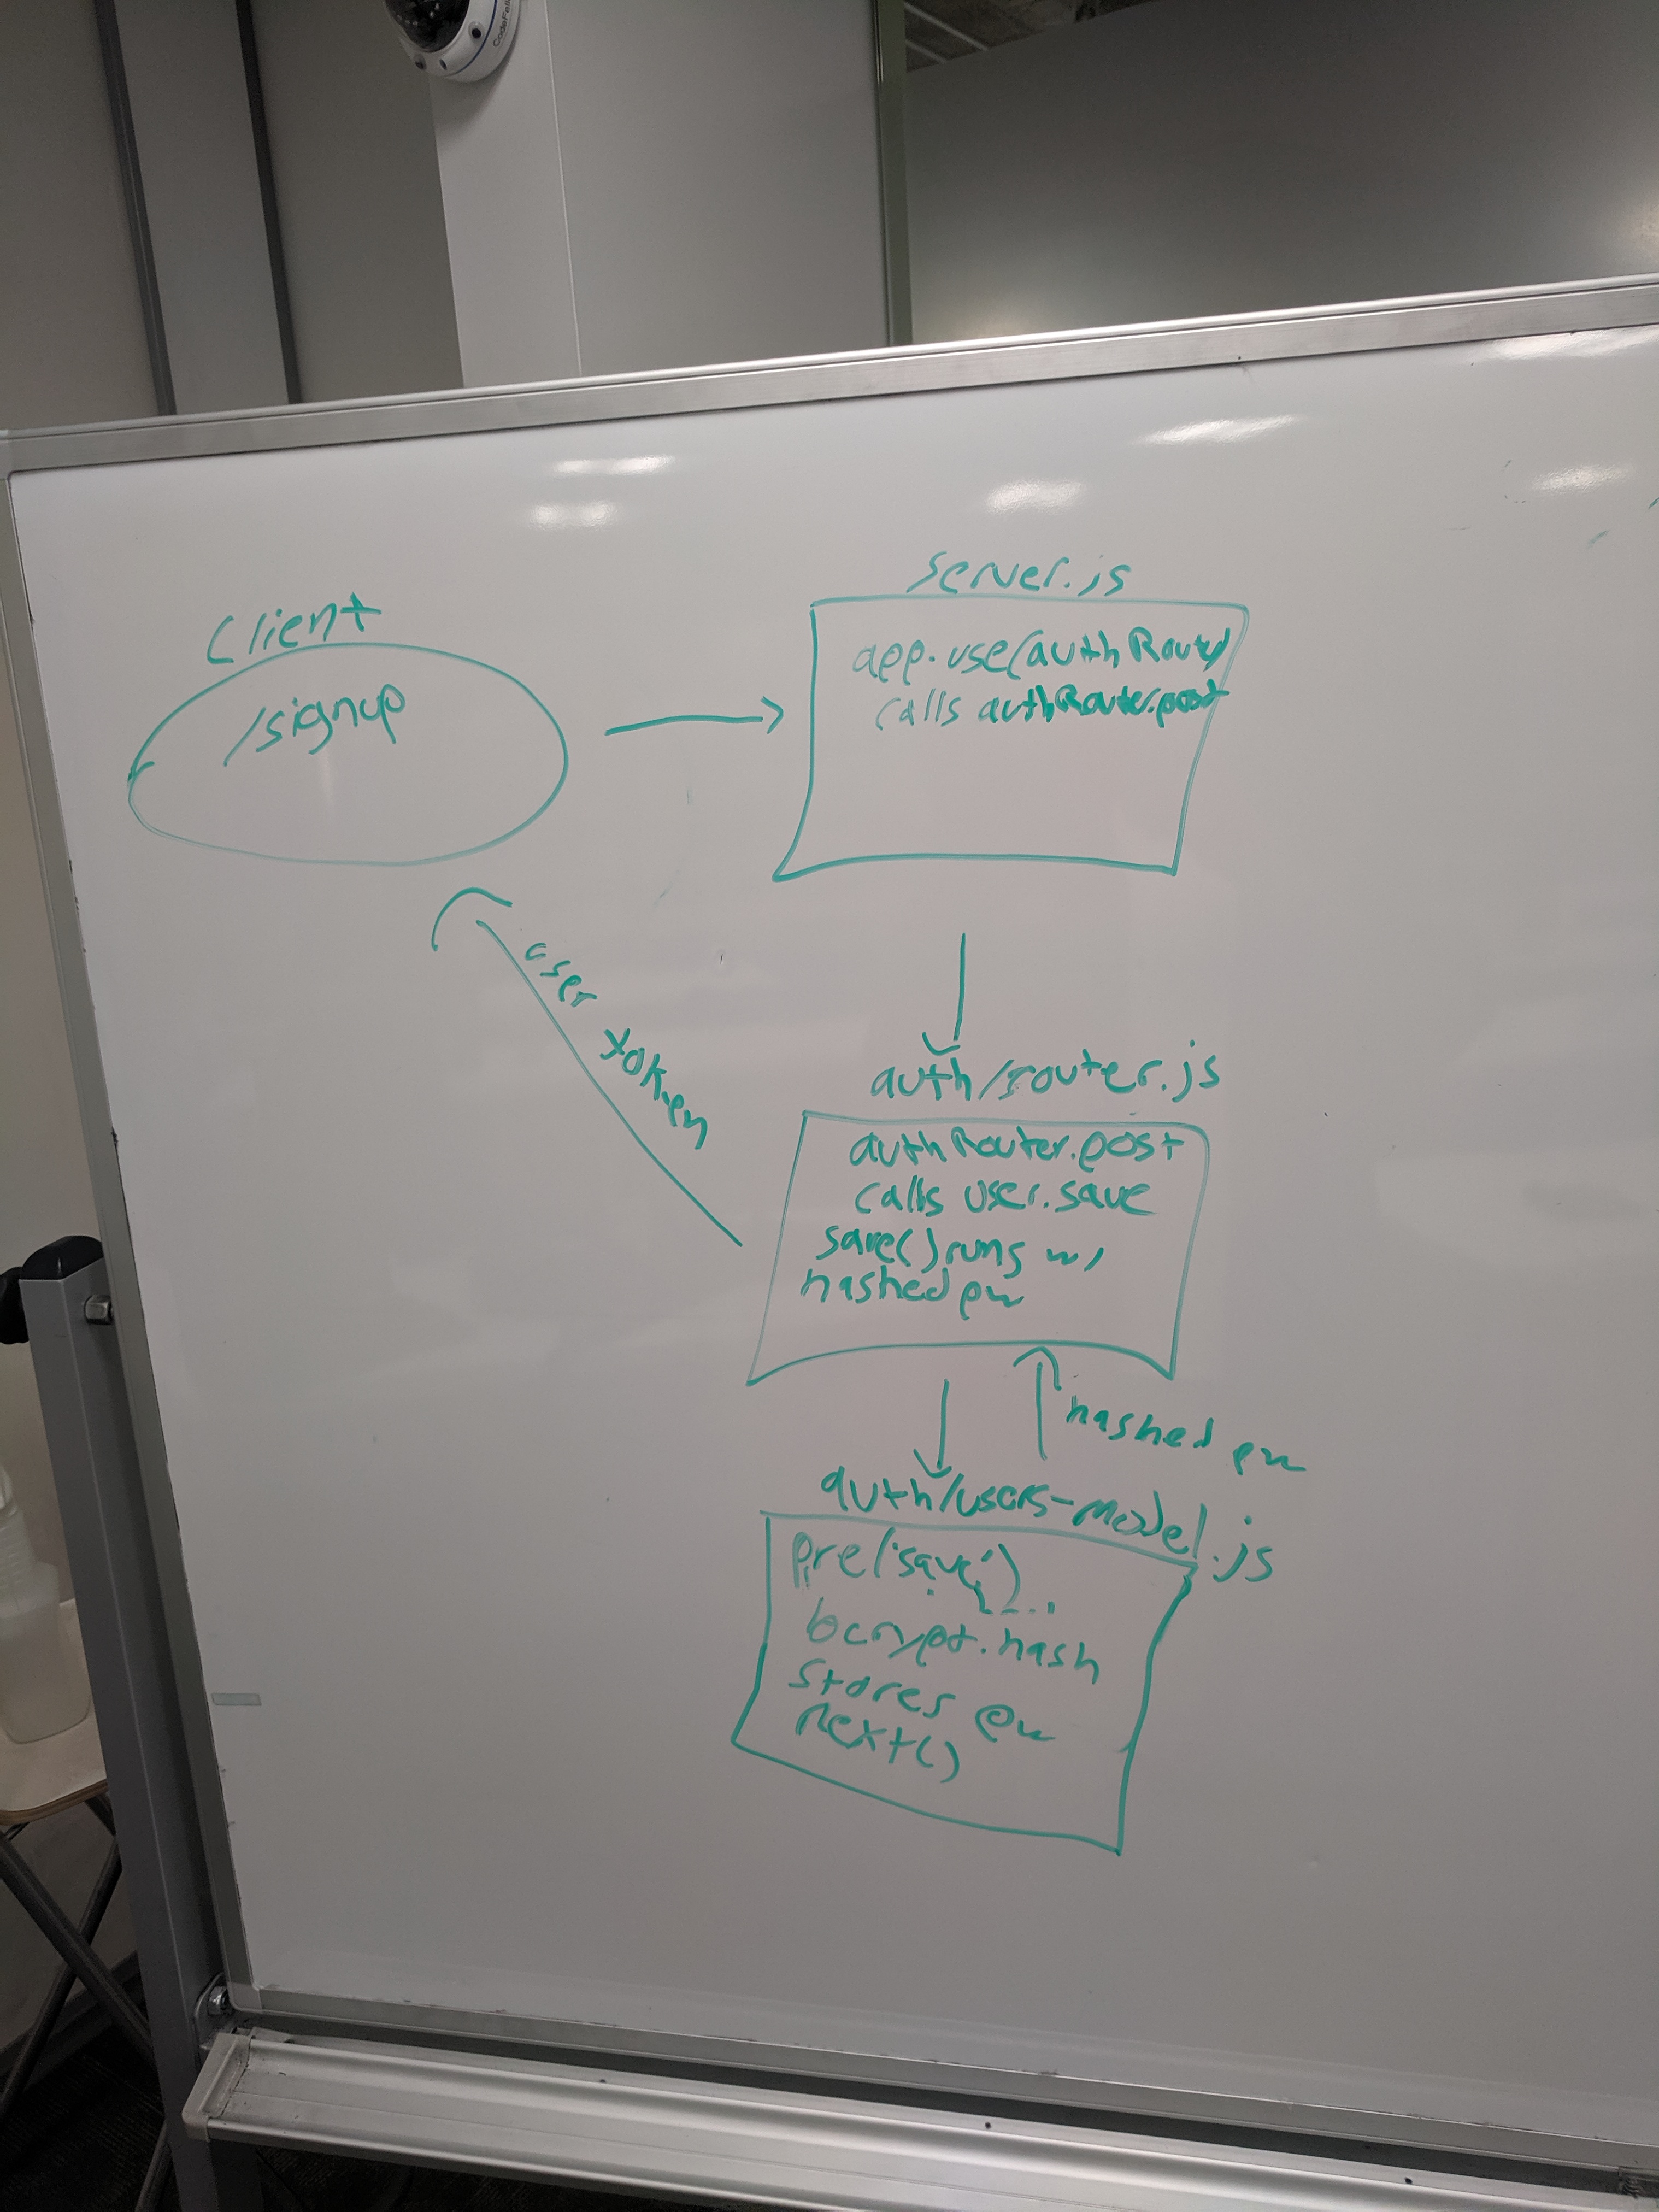 CodeFell
Client
/signup
server.js
app.use(authRouter)
calls authRouter.post
user token
auth/router.js
authRouter.post
calls user.save
save() runs w/
hashed pw
hashed pw
auth/users-model.js
Pre('save')...
bcrypt.hash
Stores pw
Next()